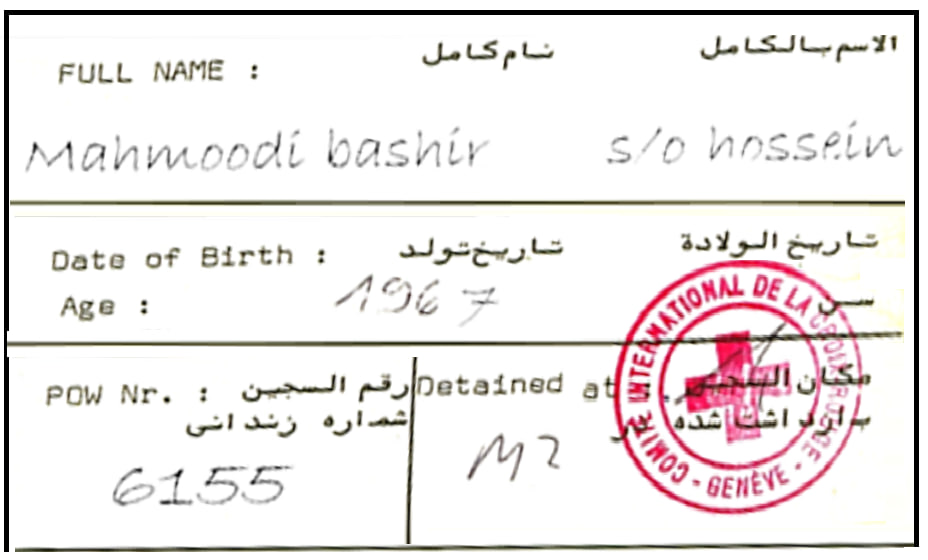 FULL NAME : نام کامل الاسم بالكامل
Mahmoodi bashir s/o hossein
Date of Birth : تاريخ تولد تاريخ الولادة
Age : 1967 سن
POW Nr. : رقم السجين
شماره زندانی
6155
Detained at : مكان السجين
بازداشت شده در
M2
COMITÉ INTERNATIONAL DE LA CROIX-ROUGE - GENÈVE -